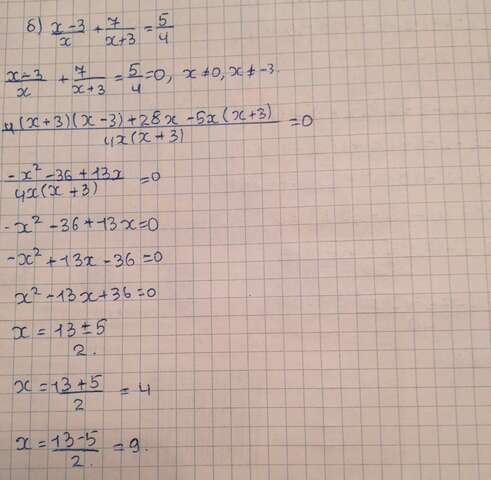 б) x-3/x + 7/x+3 = 5/4
x-3/x + 7/x+3 = 5/4 = 0, x ≠ 0, x ≠ -3.
4(x+3)(x-3)+28x-5x(x+3)/4x(x+3) = 0
-x²-36+13x/4x(x+3) = 0
-x²-36+13x=0
-x²+13x-36=0
x²-13x+36=0
x = 13±5/2.
x = 13+5/2 = 4
x = 13-5/2. = 9.